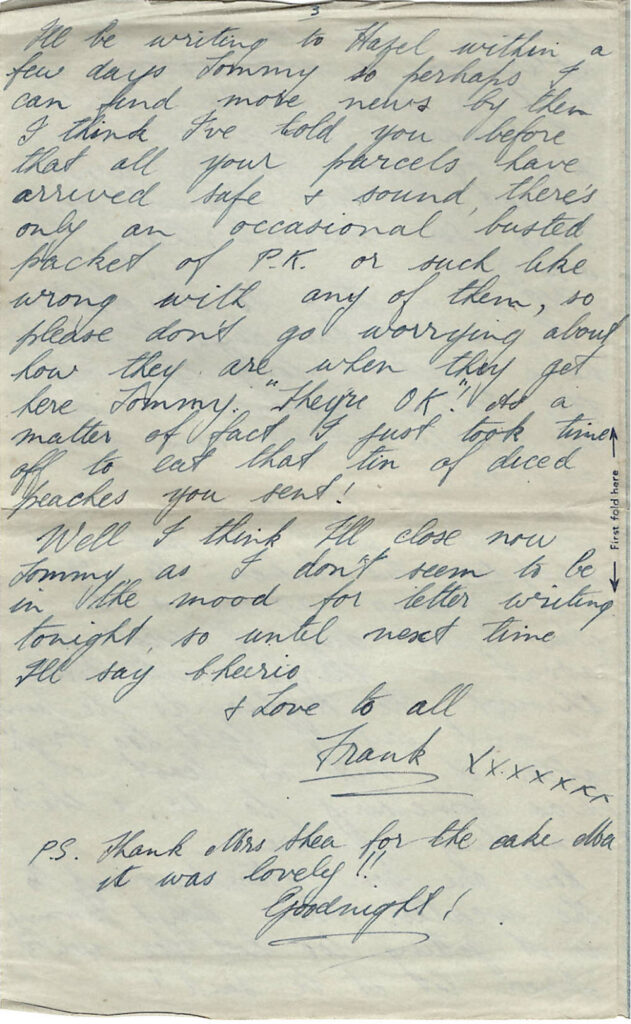 3
I'll be writing to Hazel within a
few days Tommy so perhaps I
can find more news by then
I think I've told you before
that all your parcels have
arrived safe & sound, there's
only an occasional busted
packet of P.K. or such like
wrong with any of them, so
please don't go worrying about
how they are when they get
here Tommy. "They're OK." As a
matter of fact I just took time
off to eat that tin of diced
peaches you sent!
Well I think I'll close now
Tommy as I don't seem to be
in the mood for letter writing
tonight, so until next time
I'll say Cheerio
& Love to all
Frank XXXXXXX
P.S. Thank Mrs Shea for the cake Ma
it was lovely!!
Goodnight!
First fold here